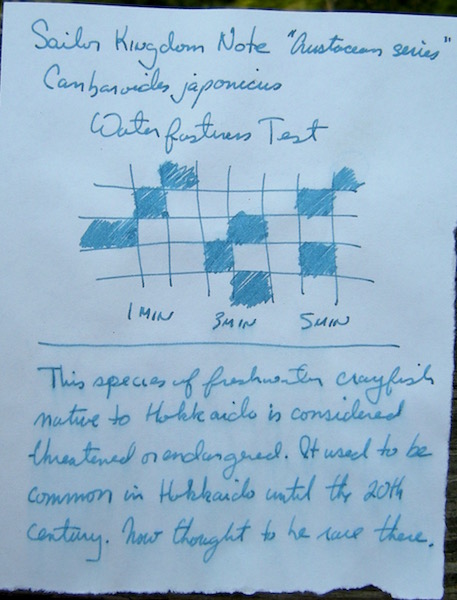 Sailor Kingdom Note "Crustacean series"
Cambaroides japonicus
Water fastness Test
1 MIN 3 MIN 5 MIN
This species of freshwater crayfish
native to Hokkaido is considered
threatened or endangered. It used to be
common in Hokkaido until the 20th
century. Now thought to be rare there.